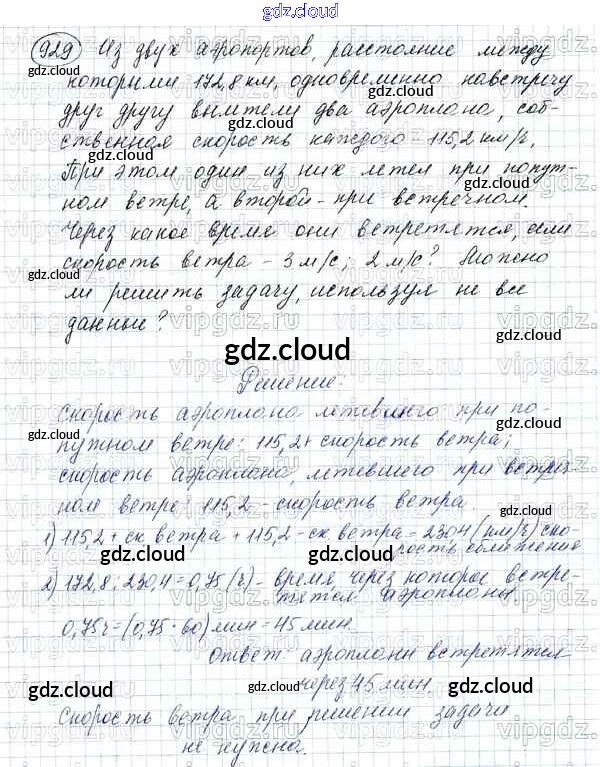 gdz.cloud
929 Из двух аэропортов, расстояние между
которыми 172,8 км, одновременно навстречу
друг другу вылетели два аэроплана, соб-
ственная скорость каждого - 115,2 км/ч.
При этом один из них летел при попут-
ном ветре, а второй - при встречном.
Через какое время они встретятся, если
скорость ветра - 3 м/с; 2 м/с? Можно
ли решить задачу, используя не все
данные?
gdz.cloud
Решение:
Скорость аэроплана летевшего при по-
путном ветре: 115,2 + скорость ветра;
скорость аэроплана, летевшего при встреч-
ном ветре: 115,2 - скорость ветра.
1) 115,2 + ск ветра + 115,2 - ск ветра = 230,4 (км/ч) ско-
рость сближения
2) 172,8 : 230,4 = 0,75 (ч) - время, через которое встре-
тятся аэропланы.
0,75 ч = (0,75 · 60) мин = 45 мин.
Ответ: аэропланы встретятся
через 45 мин.
Скорость ветра при решении задачи
не нужна.